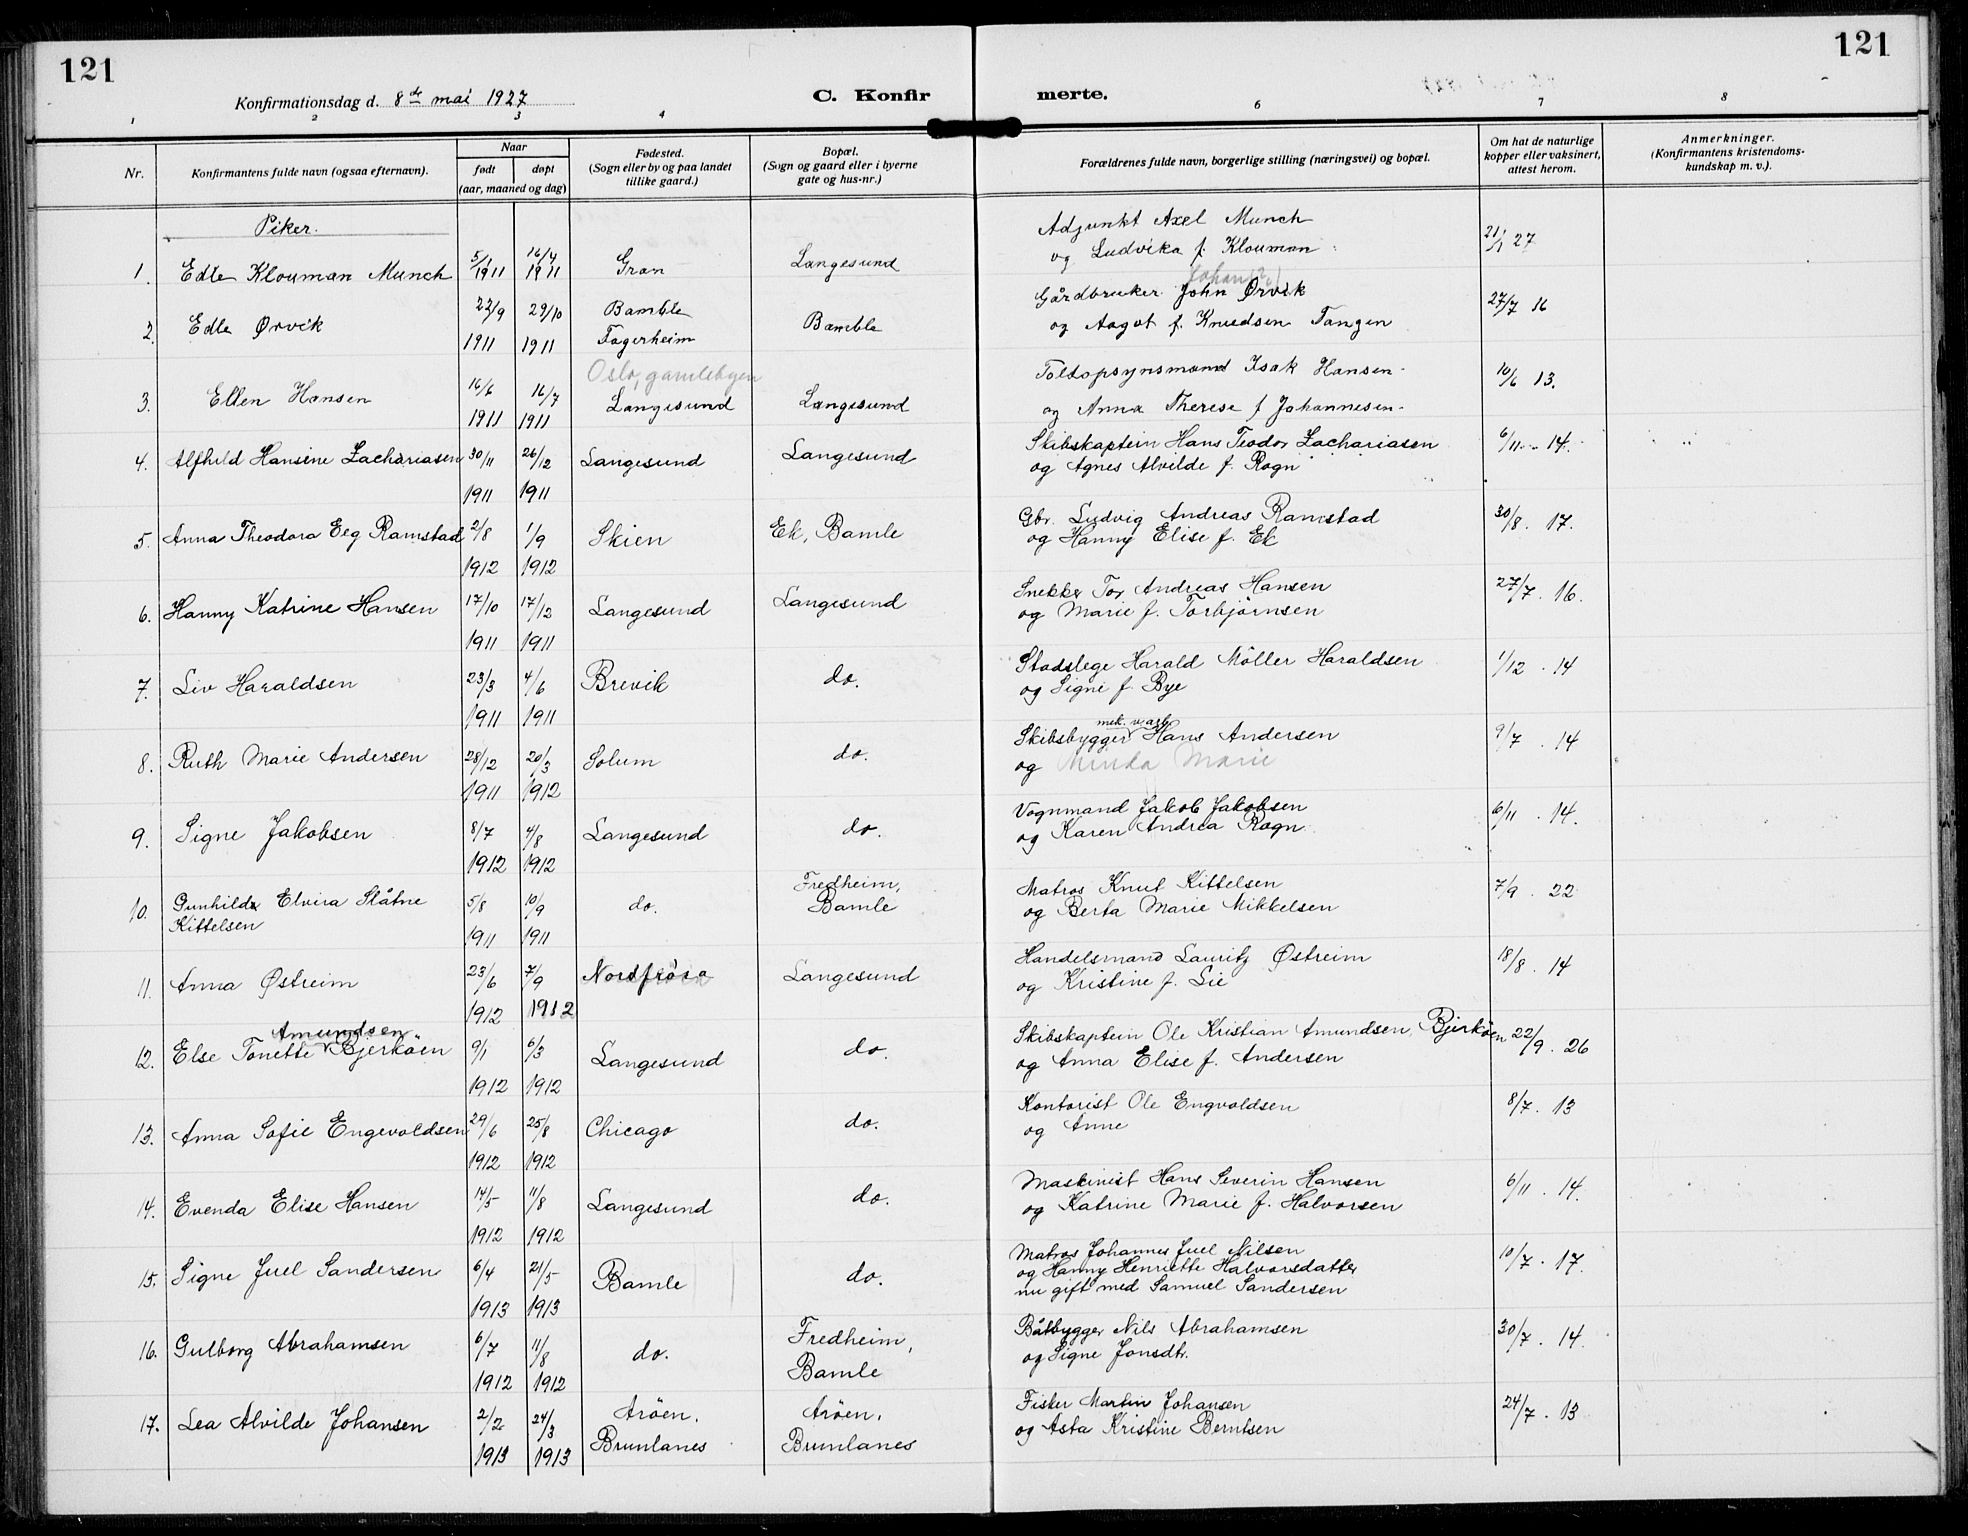 121
121
Konfirmationsdag d. 8de mai 1927
C. Konfir
merte.
1 2 3 4 6 7 8
Nr.
Konfirmantens fulde navn (ogsaa efternavn).
Naar
født
døpt
(aar, maaned og dag)
Fødested.
(Sogn eller by og paa landet
tillike gaard.)
Bopæl.
(Sogn og gaard eller i byerne
gate og hus-nr.)
Forældrenes fulde navn, borgerlige stilling (næringsvei) og bopæl.
Om hat de naturlige
kopper eller vaksinert,
attest herom.
Anmerkninger.
(Konfirmantens kristendoms-
kundskap m. v.).
Piker.
1. Edle Klouman Munch 5/1 1911 16/4 1911 Gran Langesund
Adjunkt Axel Munch
og Ludvika f. Klouman
21/1 27
2. Edle Ørvik 22/9 1911 29/10 1911 Bamble
Fagerheim
Bamble
Johan (?)
Gårdbruker John Ørvik
og Aagot f. Knudsen Tangen
27/7 16
3. Ellen Hansen 16/6 1911 16/7 1911
Oslo, gamlebyen
Langesund
Langesund
Toldopsynsmand Isak Hansen
og Anna Therese f Johannesen
10/6 13.
4. Alfhild Hansine Zachariasen 30/11 1911 26/12 1911 Langesund Langesund
Skibskaptein Hans Teodor Zachariasen
og Agnes Alvilde f. Rogn
6/11 . 14.
5. Anna Theodora Eeg Ramstad 2/8 1912 1/9 1912 Skien Ek, Bamle
Gbr. Ludvig Andreas Ramstad
og Hanny Elise f. Ek
30/8. 17.
6. Hanny Katrine Hansen 17/10 1911 17/12 1911 Langesund Langesund
Snekker Tor Andreas Hansen
og Marie f. Torbjörnsen
27/7. 16.
7. Liv Haraldsen 23/3 1911 4/6 1911 Brevik do.
Stadslege Harald Möller Haraldsen
og Signe f. Bye
1/12 . 14
8. Ruth Marie Andersen 28/12 1911 20/3 1912 Solum do.
mek. v. arb.
Skibsbygger Hans Andersen
og Minda Marie
9/7 . 14
9. Signe Jakobsen 8/7 1912 4/8 1912 Langesund do.
Vognmand Jakob Jakobsen
og Karen Andrea Rogn
6/11 . 14.
10. Gunhilda Elvira Slåtne
Kittelsen
5/8 1911 10/9 1911 do.
Fredheim,
Bamle
Matros Knut Kittelsen
og Berta Marie Mikkelsen
7/9 . 22
11. Anna Østreim 23/6 1912 7/9 1912 Nordfröia Langesund
Handelsmand Lauritz Østreim
og Kristine f. Lie
18/8 . 14
Amundsen
12. Else Tonette Bjerköen 9/1 1912 6/3 1912 Langesund do.
Skibskaptein Ole Kristian Amundsen Bjerköen
og Anna Elise f. Andersen
22/9. 26
13. Anna Sofie Engevoldsen 29/6 1912 25/8 1912 Chicago do.
Kontorist Ole Engvoldsen
og Anne
8/7. 13
14. Evenda Elise Hansen 14/5 1912 11/8 1912 Langesund do.
Maskinist Hans Severin Hansen
og Katrine Marie f. Halvorsen
6/11 . 14.
15. Signe Juel Sandersen 6/4 1913 21/5 1913 Bamle do.
Matros Johannes Juel Nilsen
og Hanny Henriette Halvorsdatter
nu gift med Samuel Sandersen
10/7. 17.
16. Gulborg Abrahamsen 6/7 1912 11/8 1912 do.
Fredheim,
Bamle
Båtbygger Nils Abrahamsen
og Signe Jonsdtr.
30/7. 14.
17. Lea Alvilde Johansen 2/2 1913 24/3 1913
Aröen,
Brunlanes
Aröen,
Brunlanes
Fisker Martin Johansen
og Asta Kristine Berntsen
24/7. 13